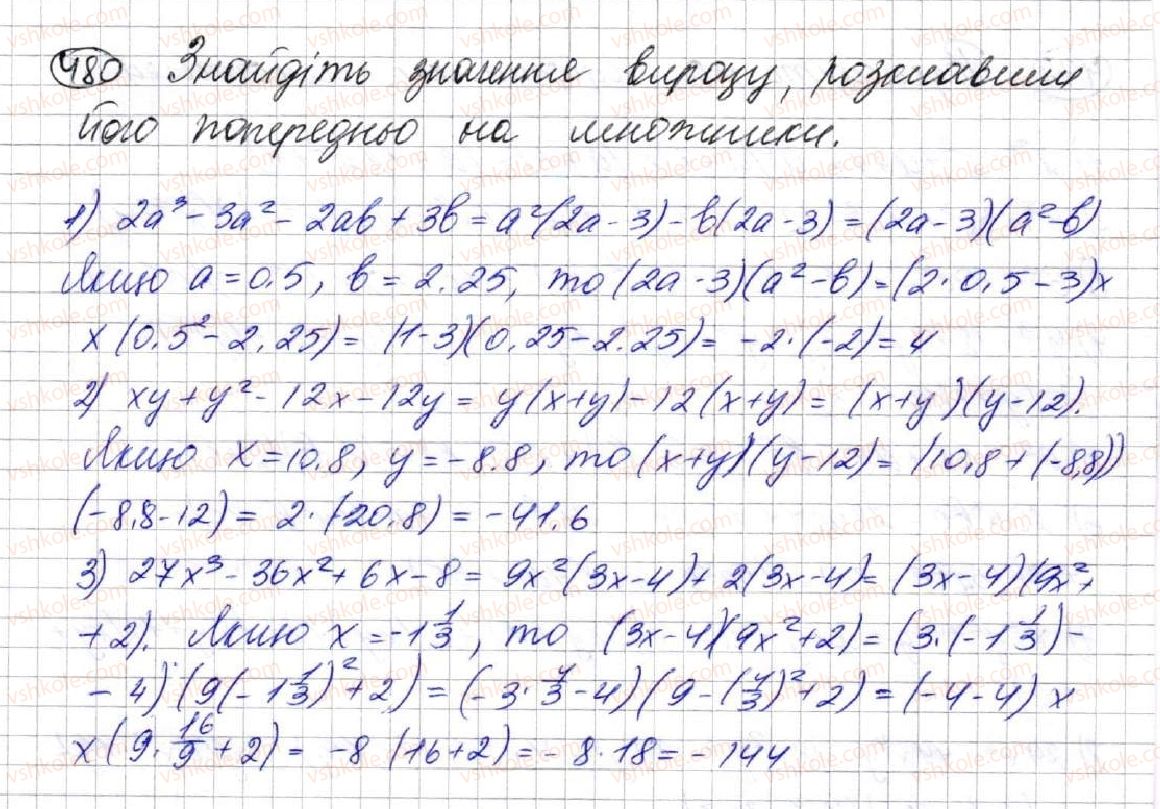 480 Знайдіть значення виразу, розклавши
його попередньо на множники.
1) 2a³ - 3a² - 2ab + 3b = a²(2a - 3) - b(2a - 3) = (2a - 3)(a² - b)
Якщо a = 0.5, b = 2.25, то (2a - 3)(a² - b) = (2 · 0,5 - 3) x
x (0,5² - 2,25) = (1 - 3)(0,25 - 2.25) = -2 · (-2) = 4
2) xy + y² - 12x - 12y = y(x + y) - 12(x + y) = (x + y)(y - 12).
Якщо x = 10,8, y = -8.8, то (x + y)(y - 12) = (10,8 + (-8,8))
(-8,8 - 12) = 2 · (-20.8) = -41,6
3) 27x³ - 36x² + 6x - 8 = 9x²(3x - 4) + 2(3x - 4) = (3x - 4)(9x² +
+ 2). Якщо x = -1 1/3, то (3x - 4)(9x² + 2) = (3 · (-1 1/3) -
- 4) · (9(-1 1/3)² + 2) = (-3 · 4/3 - 4)(9 - (4/3)² + 2) = (-4 - 4) x
x (9 · 16/9 + 2) = -8 (16 + 2) = -8 · 18 = -144